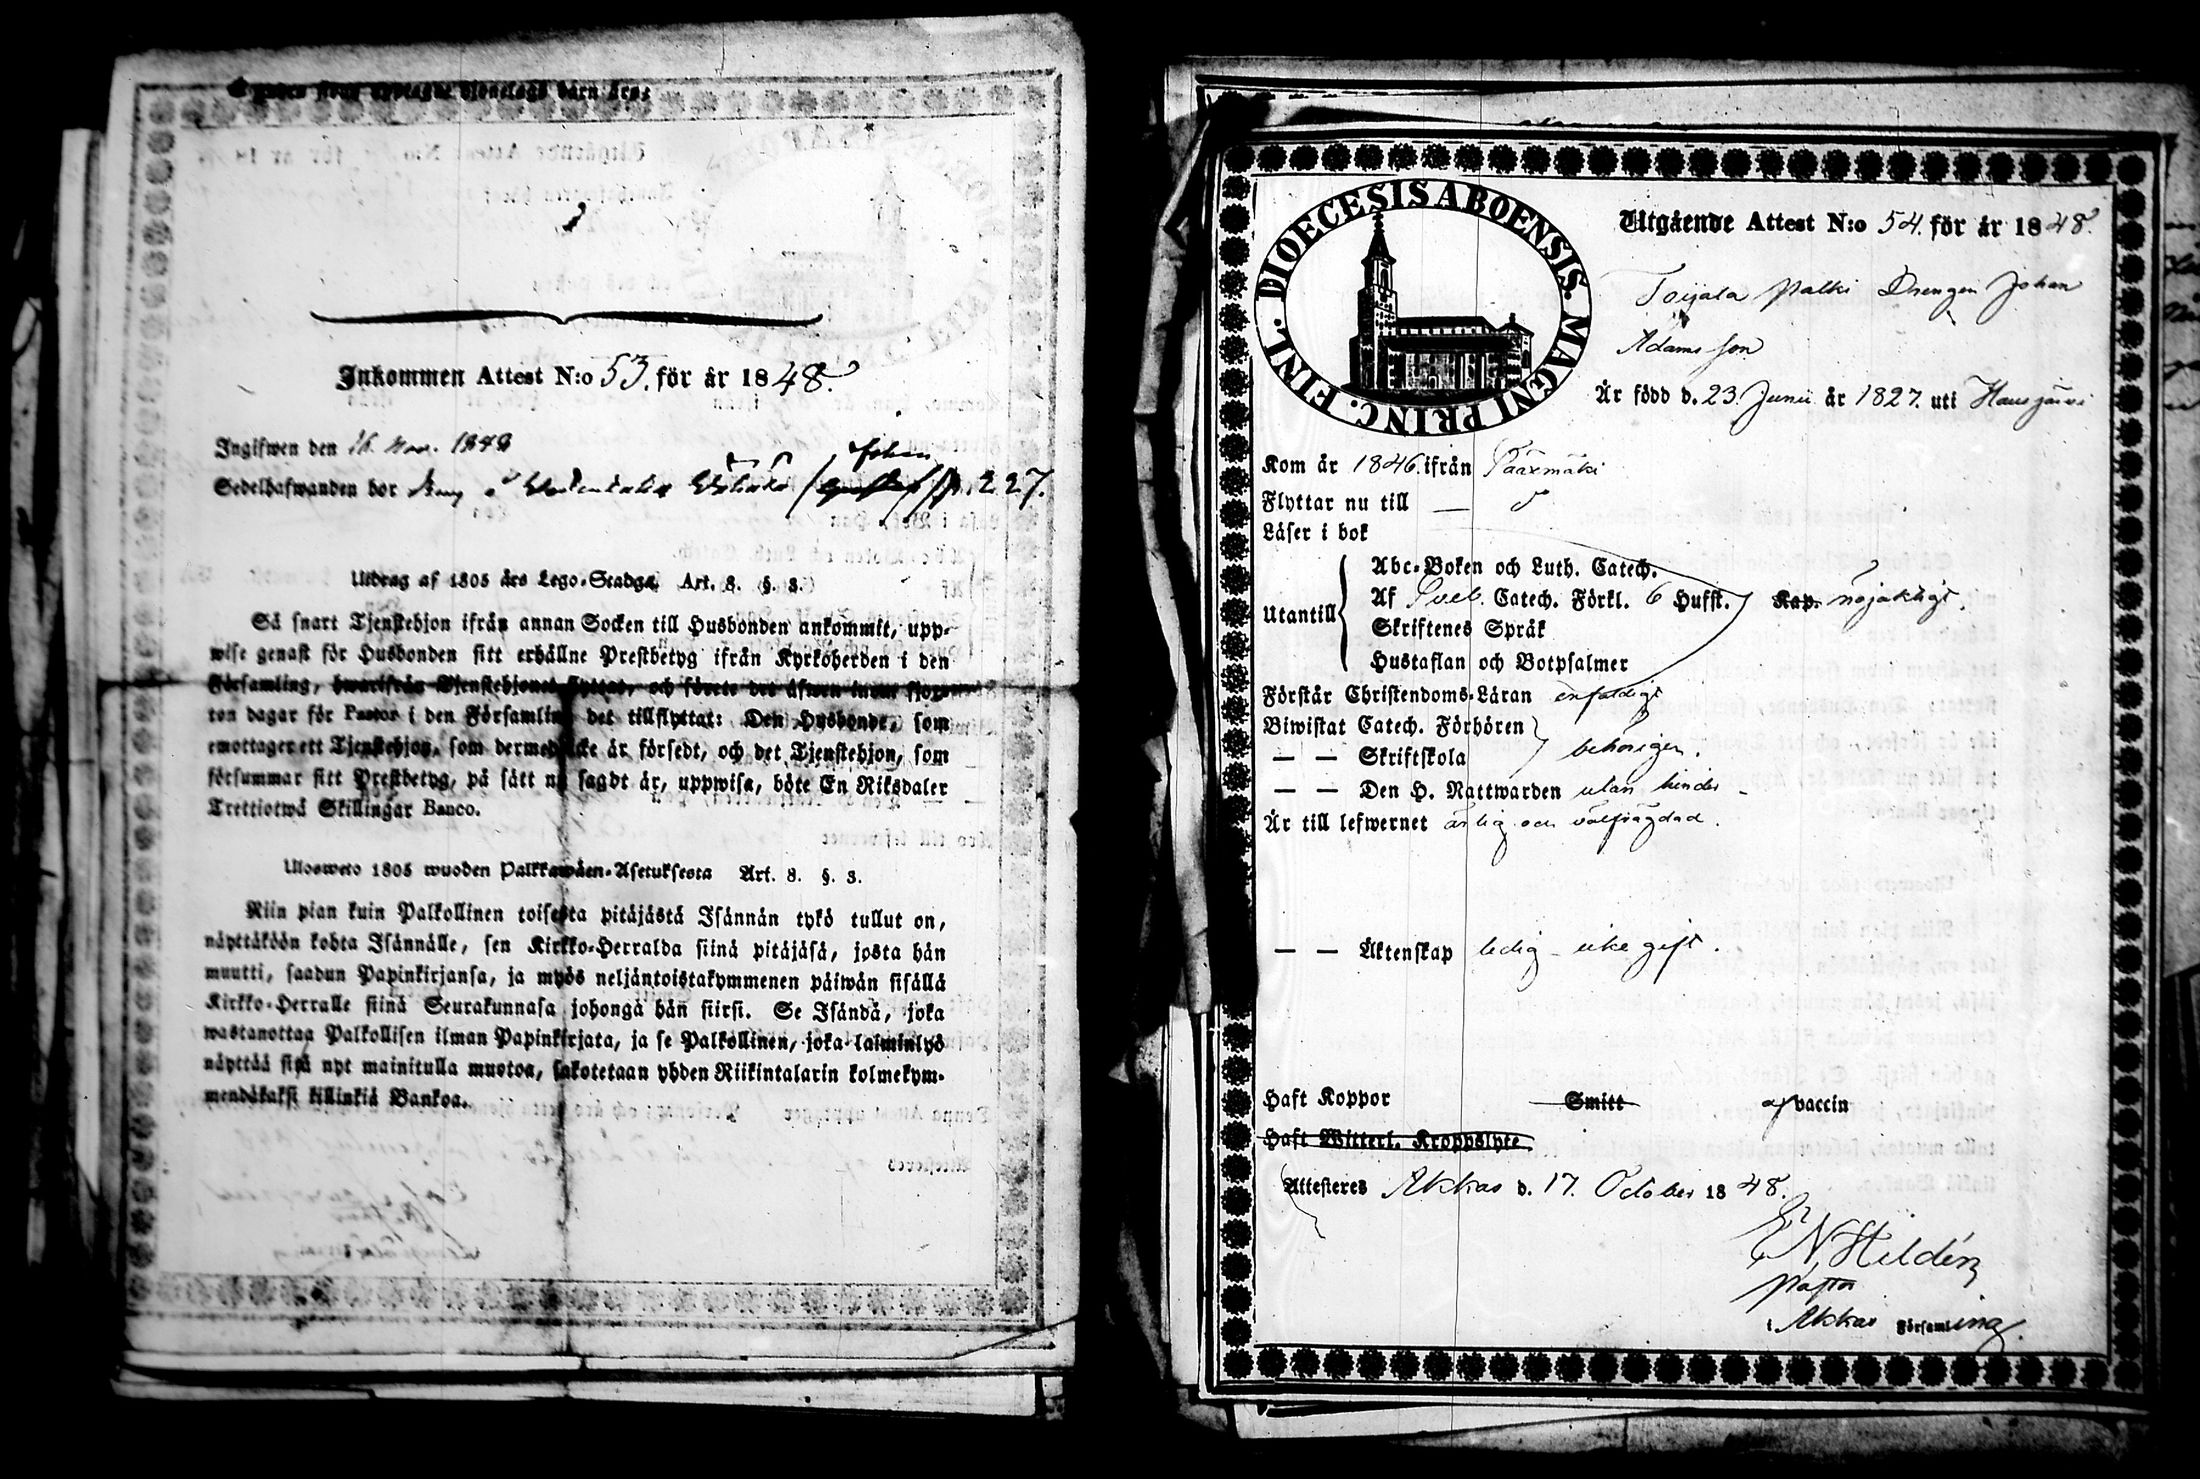 Inkommen Attest N:o 53. för år 1848.
Ingifwen den 16. Nov. 1848
Johan
Sedelhafwanden bor p. 227.
Utdrag af 1805 års Lego-Stadga. Art. 8. §. 3.
Så snart Tjenstehjon ifrån annan Socken till Husbonden ankommit, upp-
wise genast för Husbonden sitt erhållne Prestbetyg ifrån Kyrkoherden i den
Församling, hwarifrån Tjenstehjonet flyttat, och förete det äfwen inom fjor-
ton dagar för Pastor i den Församling det tillflyttat: Den Husbonde, som
emottager ett Tjenstehjon, som dermed icke är försedt, och det Tjenstehjon, som
försummar sitt Prestbetyg, på sätt nu sagdt är, uppwisa, böte En Riksdaler
Trettiotwå Skillingar Banco.
Ulosweto 1805 wuoden Palkkawäen-Asetuksesta Art. 8. §. 3.
Niin pian kuin Palkollinen toisesta pitäjästä Isännän tykö tullut on,
näyttäköön kohta Isännälle, sen Kirkko-Herralda siinä pitäjäsä, josta hän
muutti, saadun Papinkirjansa, ja myös neljäntoistakymmenen päiwän sisällä
Kirkko-Herralle siinä Seurakunnasa johonga hän siirsi. Se Isändä, joka
wastanottaa Palkollisen ilman Papinkirjata, ja se Palkollinen, joka laiminlyö
näyttää sitä nyt mainitulla muotoa, sakotetaan yhden Riikintalarin kolmekym-
mendäkaksi killinkiä Bankoa.
DIOECESIS ABOENSIS. MAGNI PRINC. FINL.
Utgående Attest N:o 54. för år 1848.
Toijala Palki Drengen Johan
Adams son
Är född d. 23. Junii år 1827. uti Hausjärvi
Kom år 1846. ifrån Sääxmäki
Flyttar nu till —
Läser i bok
Utantill
Abc-Boken och Luth. Catech.
Af Sveb. Catech. Förkl. 6 Hufst. Kap. nöjaktigt.
Skriftenes Språk
Hustaflan och Botpsalmer
Förstår Christendoms-Läran enfaldigt
Biwistat Catech. Förhören
— — Skriftskola behörigen.
— — Den H. Nattwarden utan hinder
Är till lefwernet ärlig och välfrägdad.
— — Äktenskap ledig – icke gift.
Haft Koppor Smitt af vaccin
Haft Witterl. Kroppslyte
Attesteres Akkas d. 17. October 1848.
E N Hildén
Pastor
i Akkas Församling.